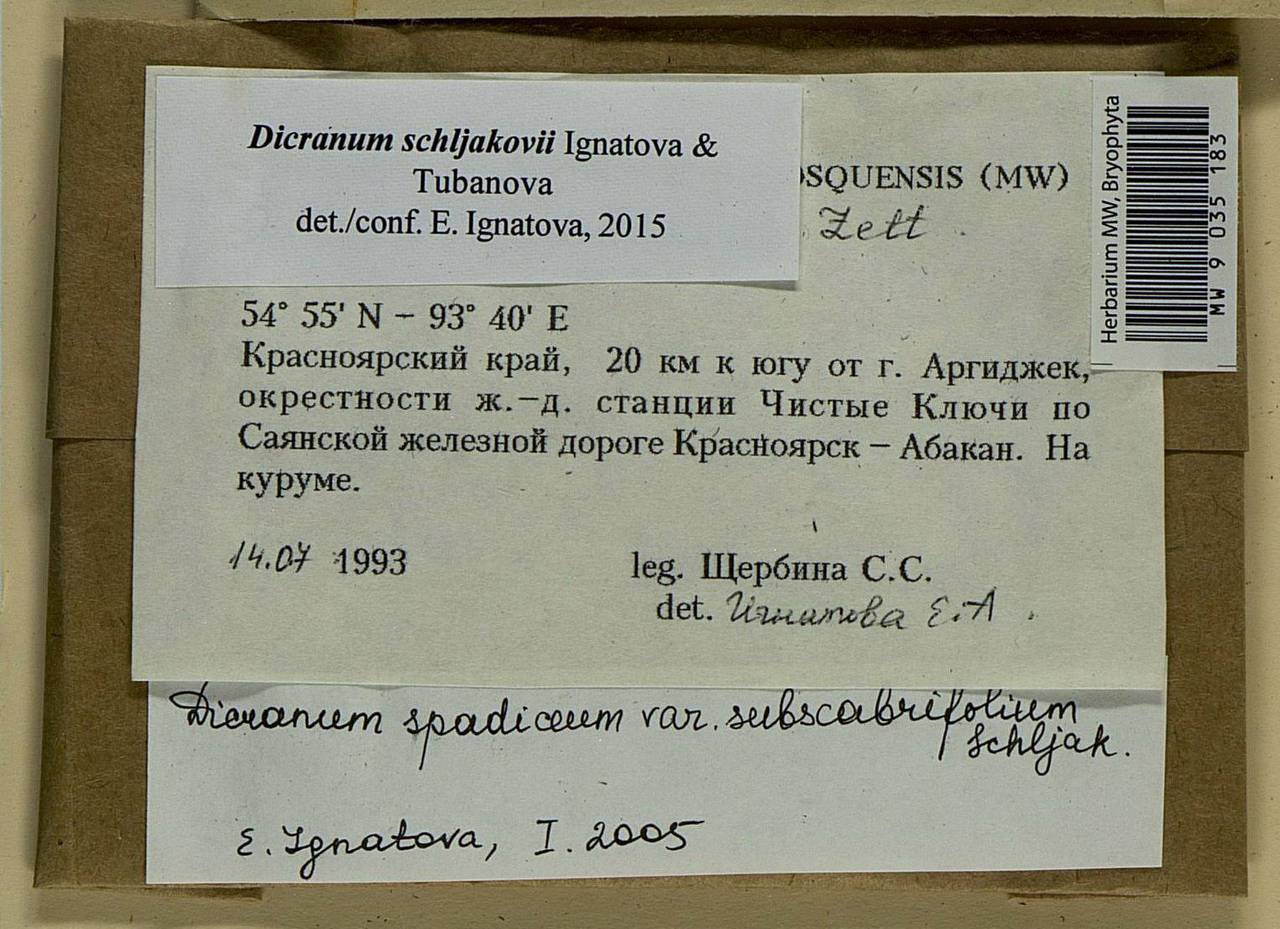 Dicranum schljakovii Ignatova &
Tubanova
det./conf. E. Ignatova, 2015
SQUENSIS (MW)
Zett.
Herbarium MW, Bryophyta
MW 9 035 183
54° 55' N – 93° 40' E
Красноярский край, 20 км к югу от г. Аргиджек,
окрестности ж.–д. станции Чистые Ключи по
Саянской железной дороге Красноярск – Абакан. На
куруме.
14.07 1993
leg. Щербина С.С.
det. Игнатова Е.А.
Dicranum spadiceum var. subscabrifolium
Schljak.
E. Ignatova, I. 2005